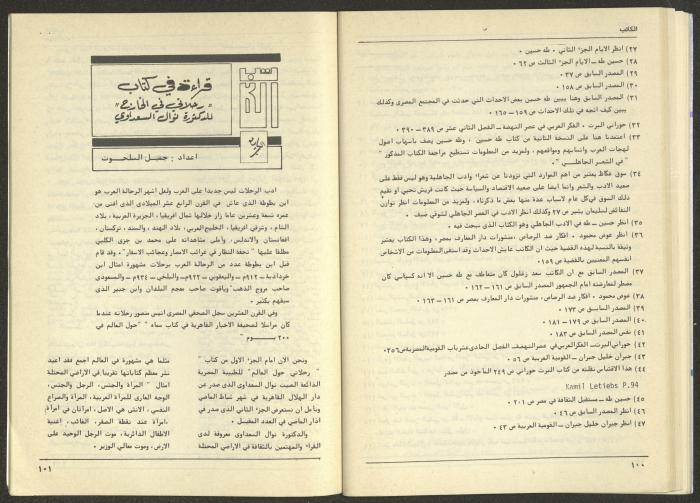 الكاتب
٢٧) انظر الايام الجزء الثاني • طه حسين •
٢٨) حسين طه ــ الايام الجزء الثالث ص ٦٢ •
٢٩) المصدر السابق ص ٣٧ •
٣٠) المصدر السابق ص ١٥٨ •
٣١) المصدر السابق وهنا يبين طه حسين بعض الاحداث التي حدثت في المجتمع المصري وكذلك
يبين كيف اتجه في تلك الاحداث ص ١٥٩ــ١٦٥ •
٣٢) حوراني البرت • الفكر العربي في عصر النهضة ــ الفصل الثاني عشر ص ٣٨٦ــ٣٩٠ •
٣٣) اعتمدنا هنا على النسخة الثانية من كتاب طه حسين ، وطه حسين يصف باسهاب اصول
لهجات العرب وانسابهم ومواقعهم ، ولمزيد من المعلومات تستطيع مراجعة الكتاب المذكور "
في الشعر الجاهلي " •
٣٤) سوق عكاظ يعتبر من اهم الموارد التي تزودنا عن شعراء وادب الجاهلية وهو ليس فقط على
صعيد الادب والشعر وانما ايضا على صعيد الاقتصاد والسياسة حيث كانت قريش تحيي او تقيم
ذلك السوق في كل عام لاسباب عدة منها بعض ما ذكرناه ، ولمزيد من المعلومات انظر توازن
النقائض لسليمان بشير ص ٢٧ وكذلك انظر الادب في العصر الجاهلي لشوقي ضيف •
٣٥) انظر حسين ــ طه في الادب الجاهلي وهو الكتاب الذي نبحث فيه •
٣٦) انظر عوض محمود • افكار ضد الرصاص ،منشورات دار المعارف بمصر ، وهذا الكتاب يعتبر
وثيقة بالنسبة لهذه القضية حيث ان الكاتب عايش الاحداث وقد استقى المعلومات من الاشخاص
انفسهم المعنيين بالقضية ص ١٥٩ •
٣٧) المصدر السابق مع ان الكاتب سعد زغلول كان متعاطف مع طه حسين الا انه كسياسي كان
مضطر لمعارضته امام الجمهور المصدر السابق ص ١٦١ــ١٦٢ •
٣٨) عوض محمود • افكار ضد الرصاص، منشورات دار المعارف بمصر ص ١٦١ــ١٦٣ •
٣٩) المصدر السابق ص ١٧٣ •
٤٠) المصدر السابق ص ١٧٩ــ١٨١ •
٤١) نفس المصدر السابق ص ١٨٣ •
٤٢) حوراني البرت ــ الفكر العربي في عصر النهضة ــ الفصل الحادي عشر باب القومية المصرية ص ٢٥٦•
٤٣) جبران خليل جبران ــ القومية العربية ص ٥٦ •
٤٤) هذا الاقتباس نقلته من كتاب البرت حوراني ص ٢٤٩ المأخوذ من مصدر
Kamil Letiebs P.94
٤٥) حسين طه ــ مستقبل الثقافة في مصر ص ٢٠١ •
٤٦) انظر المصدر السابق ص ٤٦ •
٤٧) انظر جبران خليل جبران ــ القومية العربية ص ٤٣ •
١٠٠
قراءة في كتاب
"رحلاتي في الخارج"
للدكتورة نوال السعداوي
اعداد : جميل السلحوت
ادب الرحلات ليس جديدا على العرب ولعل اشهر الرحالة العرب هو
ابن بطوطة الذي عاش في القرن الرابع عشر الميلادي الذي افنى من
عمره تسعة وعشرين عاما زار خلالها شمال افريقيا ، الجزيرة العربية ، بلاد
الشام ، وشرقي افريقيا ، الخليج العربي ، بلاد الهند ، والسند ، تركستان ،
افغانستان والاندلس، وأملى مشاهداته على محمد بن جزي الكلبي
مطلقا عليها " تحفة النظار في غرائب الامصار وعجائب الاسفار "• وقد قام
قبل ابن بطوطة عدد من الرحالة العرب برحلات مشهورة امثال ابن
خرداذبة ــ ٩١٢م ــ واليعقوبي ــ ٩٢٣م ــ والبلخي ــ ٩٣٤م ــ والمسعودي
صاحب مروج الذهب وياقوت صاحب معجم البلدان وابن جبير الذي
سبقهم بكثير •
وفي القرن العشرين سجل الصحفي المصري انيس منصور رحلاته عندما
كان مراسلا لصحيفة الاخبار القاهرية في كتاب سماه " حول العالم في
٢٠٠ يـــــوم "
ونحن الان امام الكتاب الاول من كتاب "
رحلاتي حول العالم" للطبيبة المصرية
الذائعة الصيت نوال السعداوي الذي صدر عن
دار الهلال القاهرية في شهر شباط الماضي
ونأمل ان نستعرض الجزء الثاني الذي صدر في
اذار الماضي في العدد المقبل •
والدكتورة نوال السعداوي معروفة لدى
القراء والمهتمين بالثقافة في الاراضي المحتلة
مثلما هي مشهورة في العالم اجمع فقد اعيد
نشر معظم كتاباتها تقريبا في الاراضي المحتلة
امثال " المرأة والجنس، الرجل والجنس،
الوجه العاري للمرأة العربية، المرأة والصراع
النفسي، الانثى هي الاصل، امرأتان في امرأة
،امرأة عند نقطة الصفر، الغائب، اغنية
الاطفال الدائرية، موت الرجل الوحيد على
الارض، وموت معالي الوزير •
١٠١